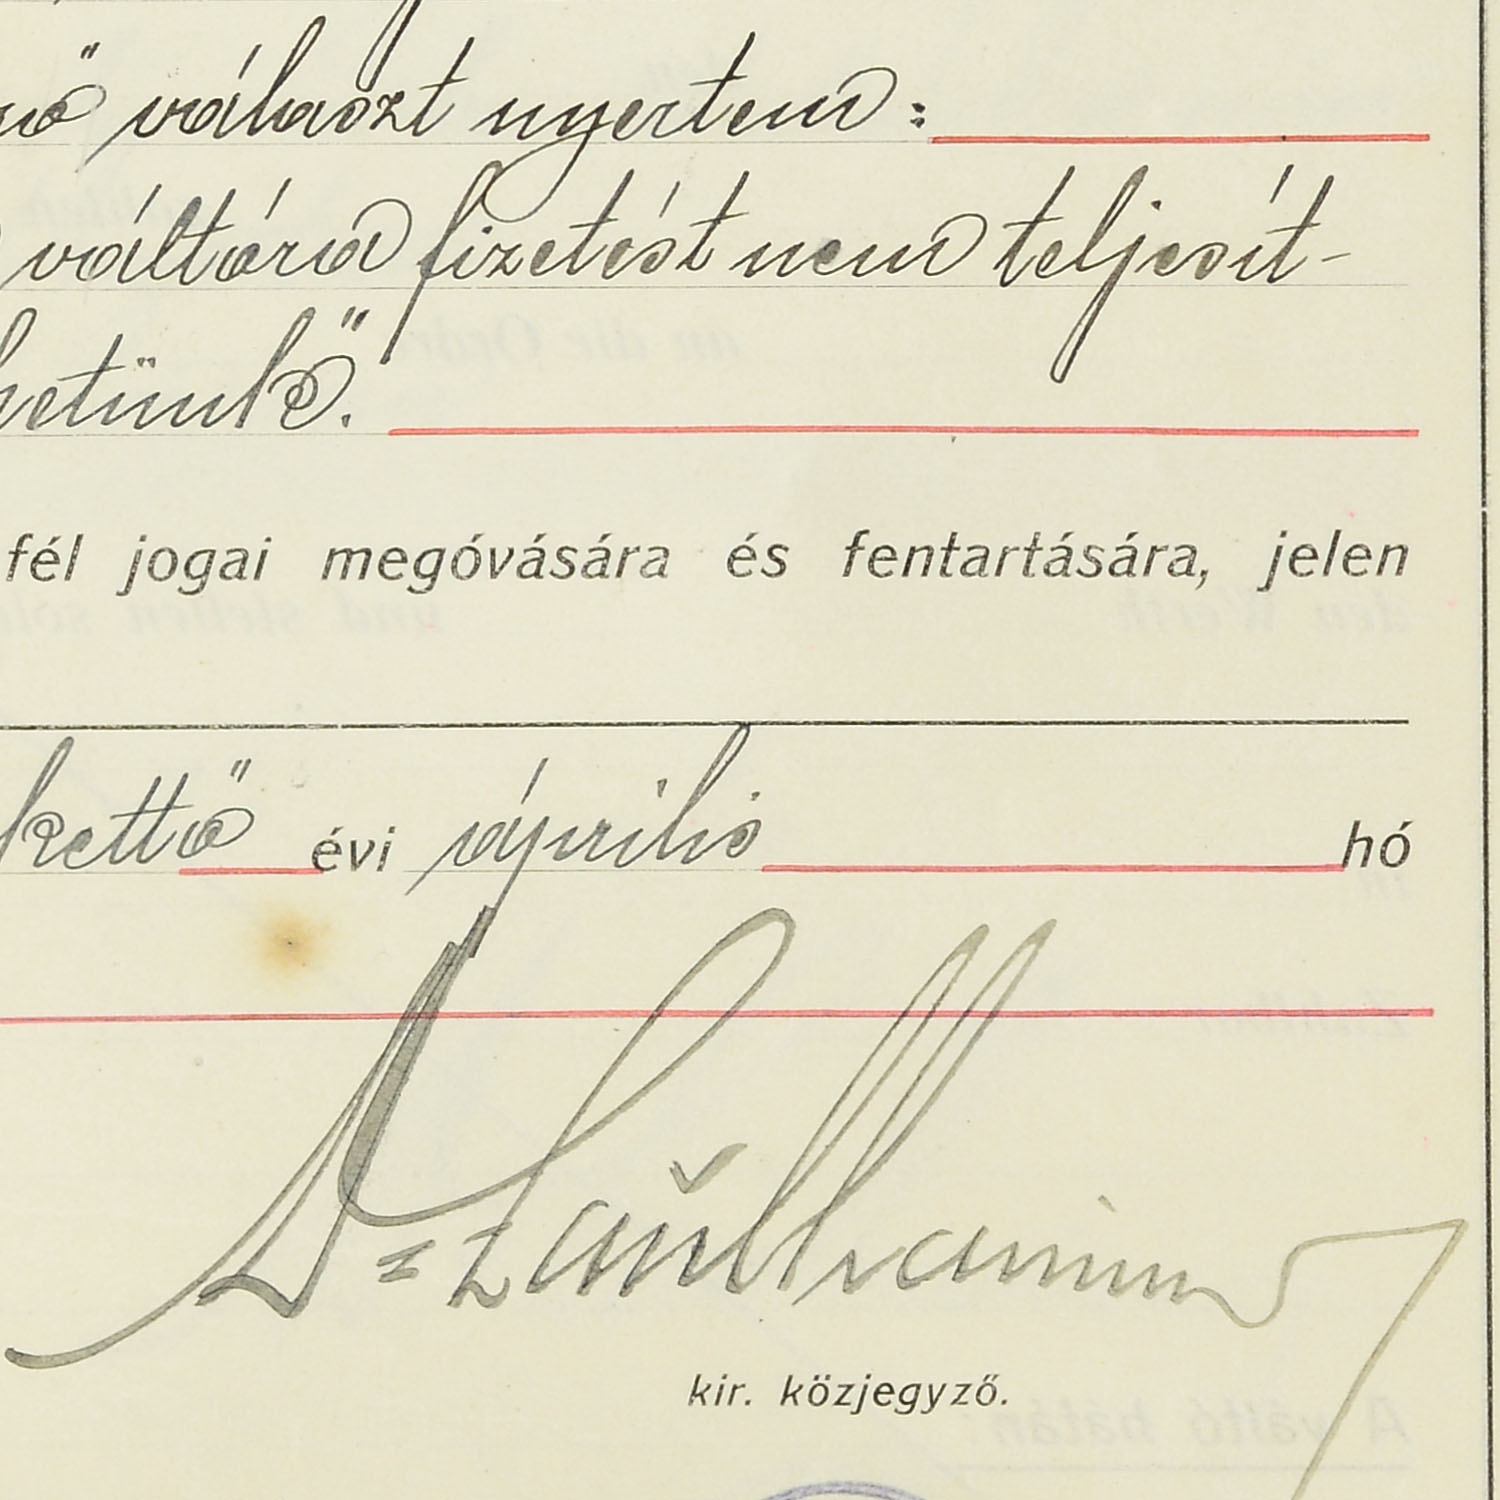 választ nyertem:
váltóra fizetést nem teljesít-
hetünk".
fél jogai megóvására és fentartására, jelen
kettő évi április hó
Dr
kir. közjegyző.